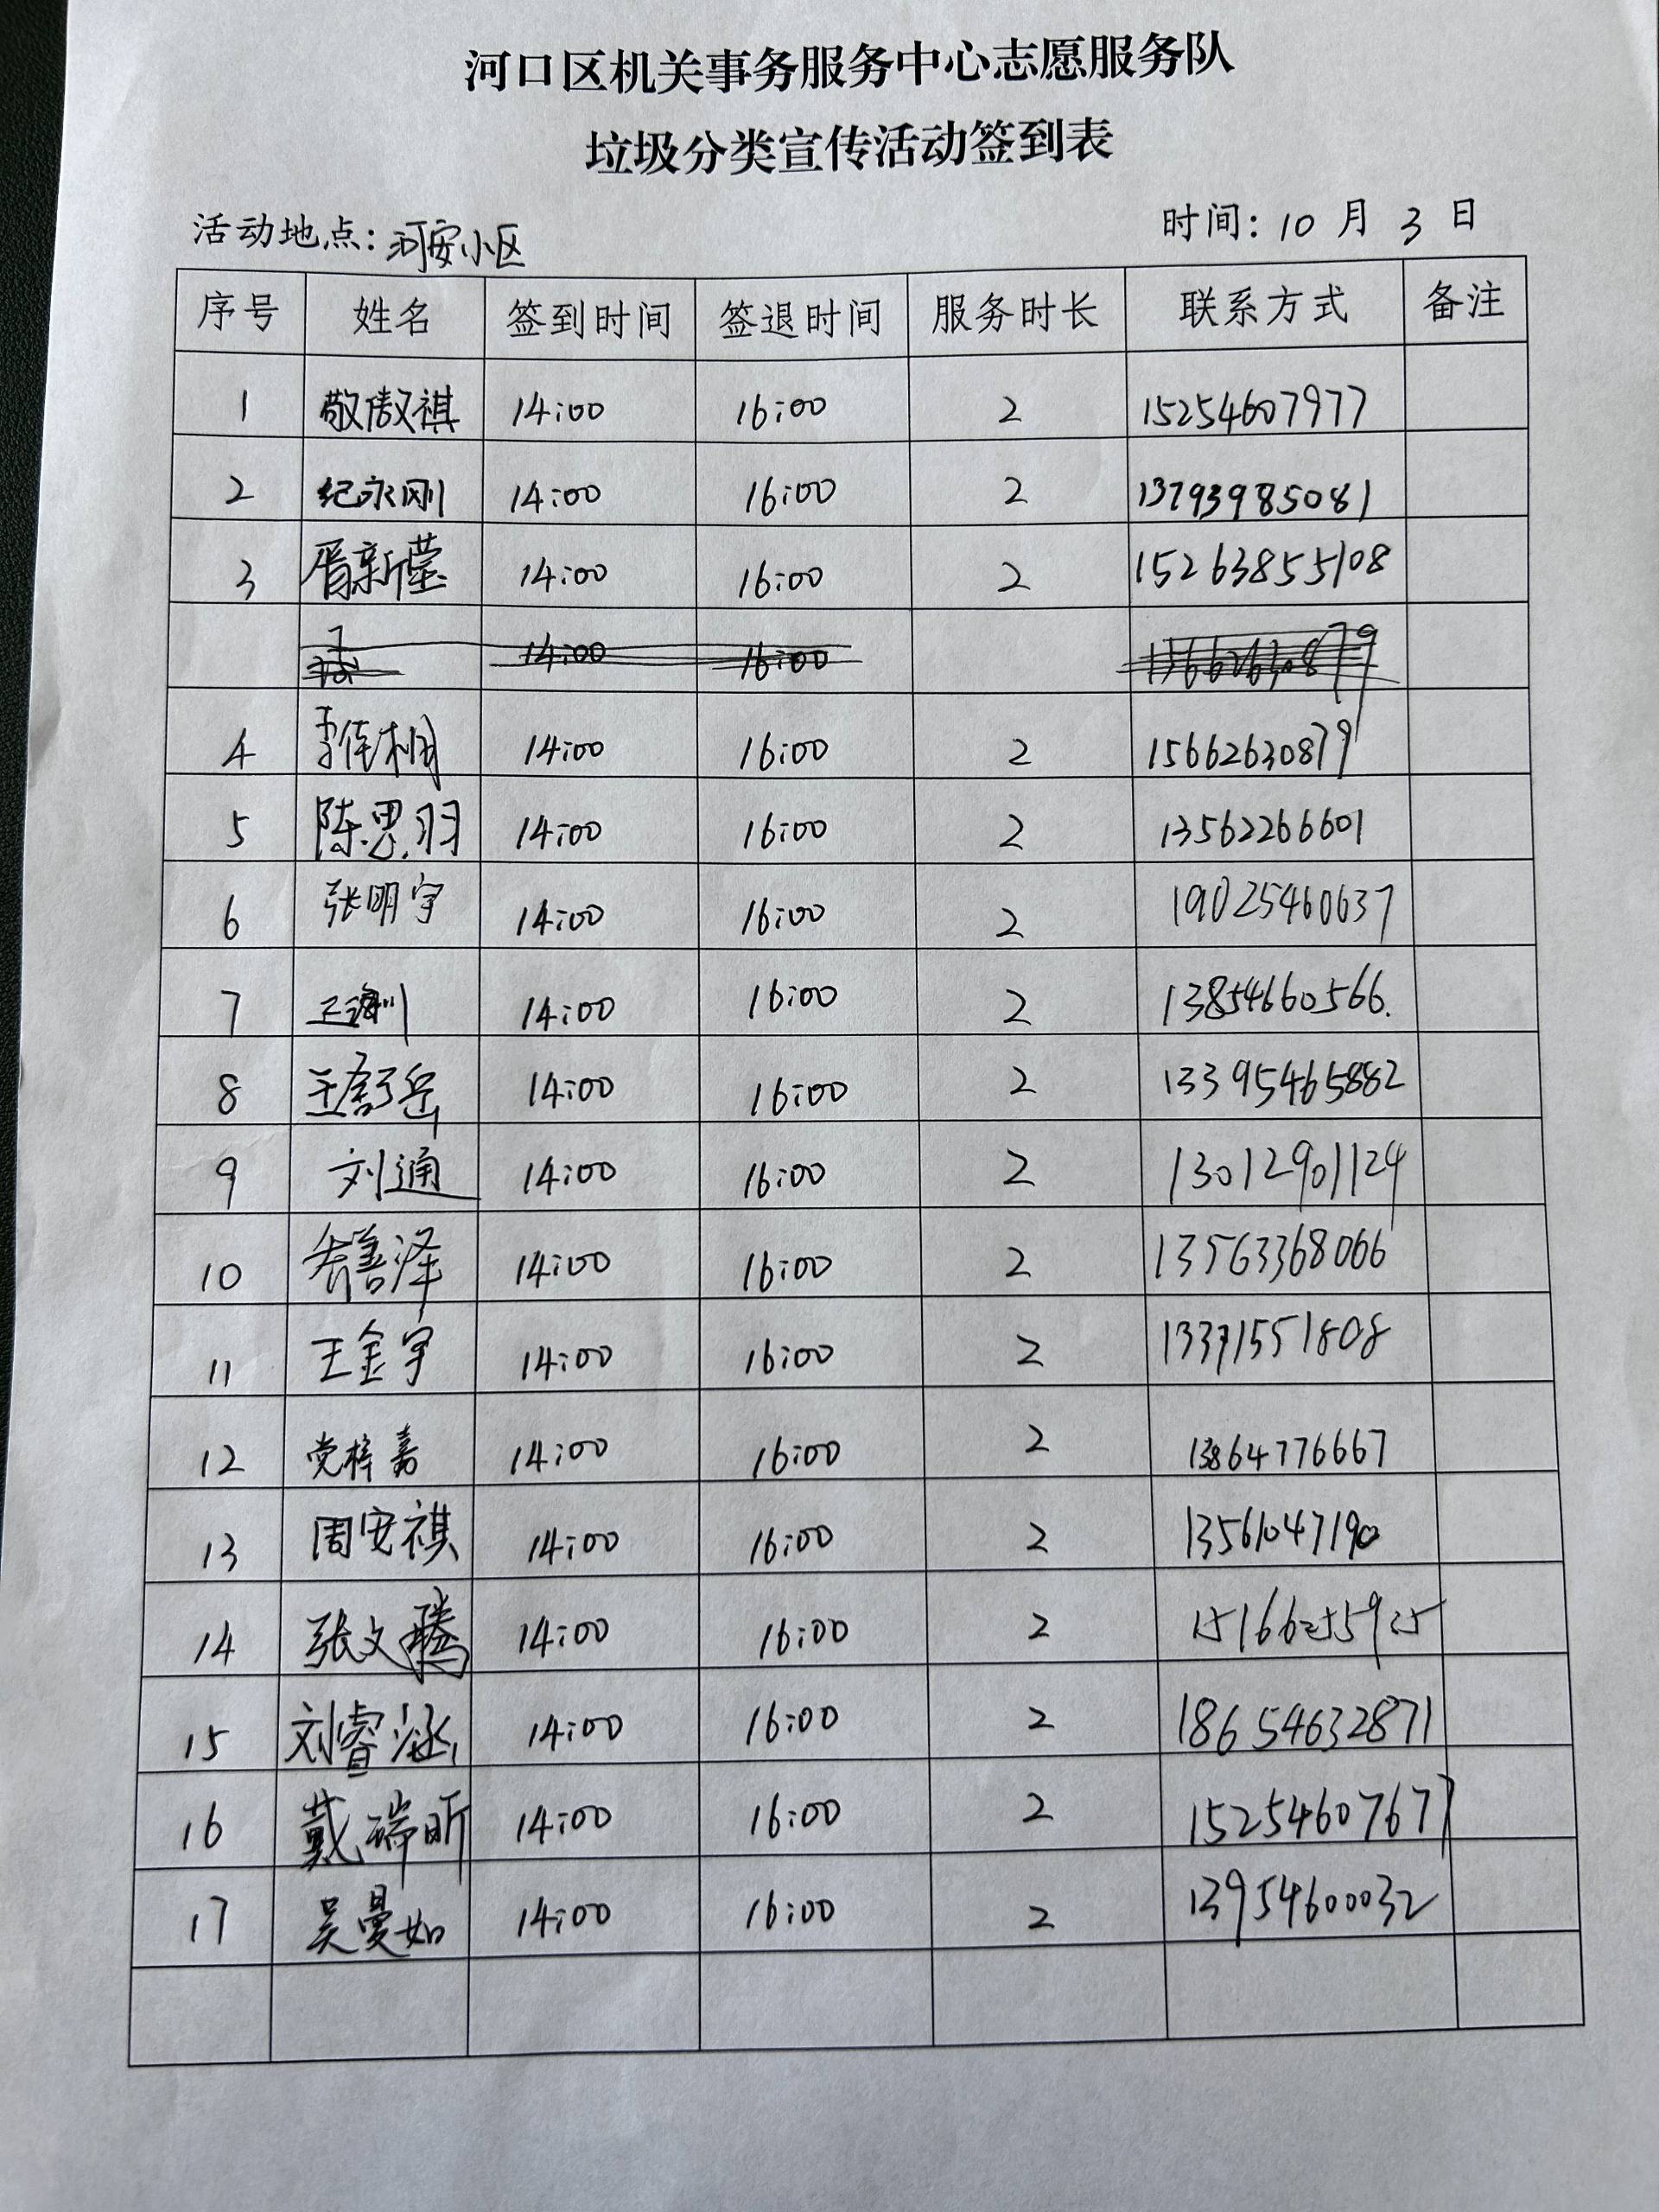 河口区机关事务服务中心志愿服务队
垃圾分类宣传活动签到表
活动地点：河安小区 时间：10 月 3 日
序号 姓名 签到时间 签退时间 服务时长 联系方式 备注
1 敬傲祺 14:00 16:00 2 15254607977
2 纪永刚 14:00 16:00 2 13793985081
3 胥新莹 14:00 16:00 2 15263855108
14:00 16:00
4 李佳桐 14:00 16:00 2 15662630879
5 陈思羽 14:00 16:00 2 13562266601
6 张明宇 14:00 16:00 2 19025460637
7 14:00 16:00 2 13854660566.
8 王舒岳 14:00 16:00 2 13395465882
9 刘通 14:00 16:00 2 13012901124
10 善泽 14:00 16:00 2 13563368066
11 王金宇 14:00 16:00 2 13371551808
12 党梓嘉 14:00 16:00 2 13864776667
13 周安祺 14:00 16:00 2 13561047190
14 张文腾 14:00 16:00 2 15166255925
15 刘睿涵 14:00 16:00 2 18654632871
16 戴瑞昕 14:00 16:00 2 15254607677
17 吴曼如 14:00 16:00 2 13954600032